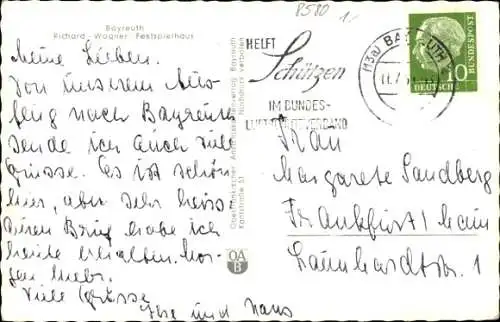 Bayreuth
Richard-Wagner Festspielhaus
8580 1.-
Meine Lieben.
Von unserem Aus-
flug nach Bayreuth
sende ich Euch viele
Grüsse. Es ist schön
hier, aber sehr heiss.
Euren Brief habe ich
heute erhalten. Mor-
gen mehr.
Viele Grüsse
Ilse und Hans
Oberfränkischer Ansichtskartenverlag Bayreuth
Karlstraße 51 Nachdruck verboten
OA
B
HELFT
Schützen
IM BUNDES-
LUFTSCHUTZVERBAND
(13a) BAYREUTH
10
DEUTSCHE
BUNDESPOST
Frau
Margarete Sandberg
Frankfurt/Main
1